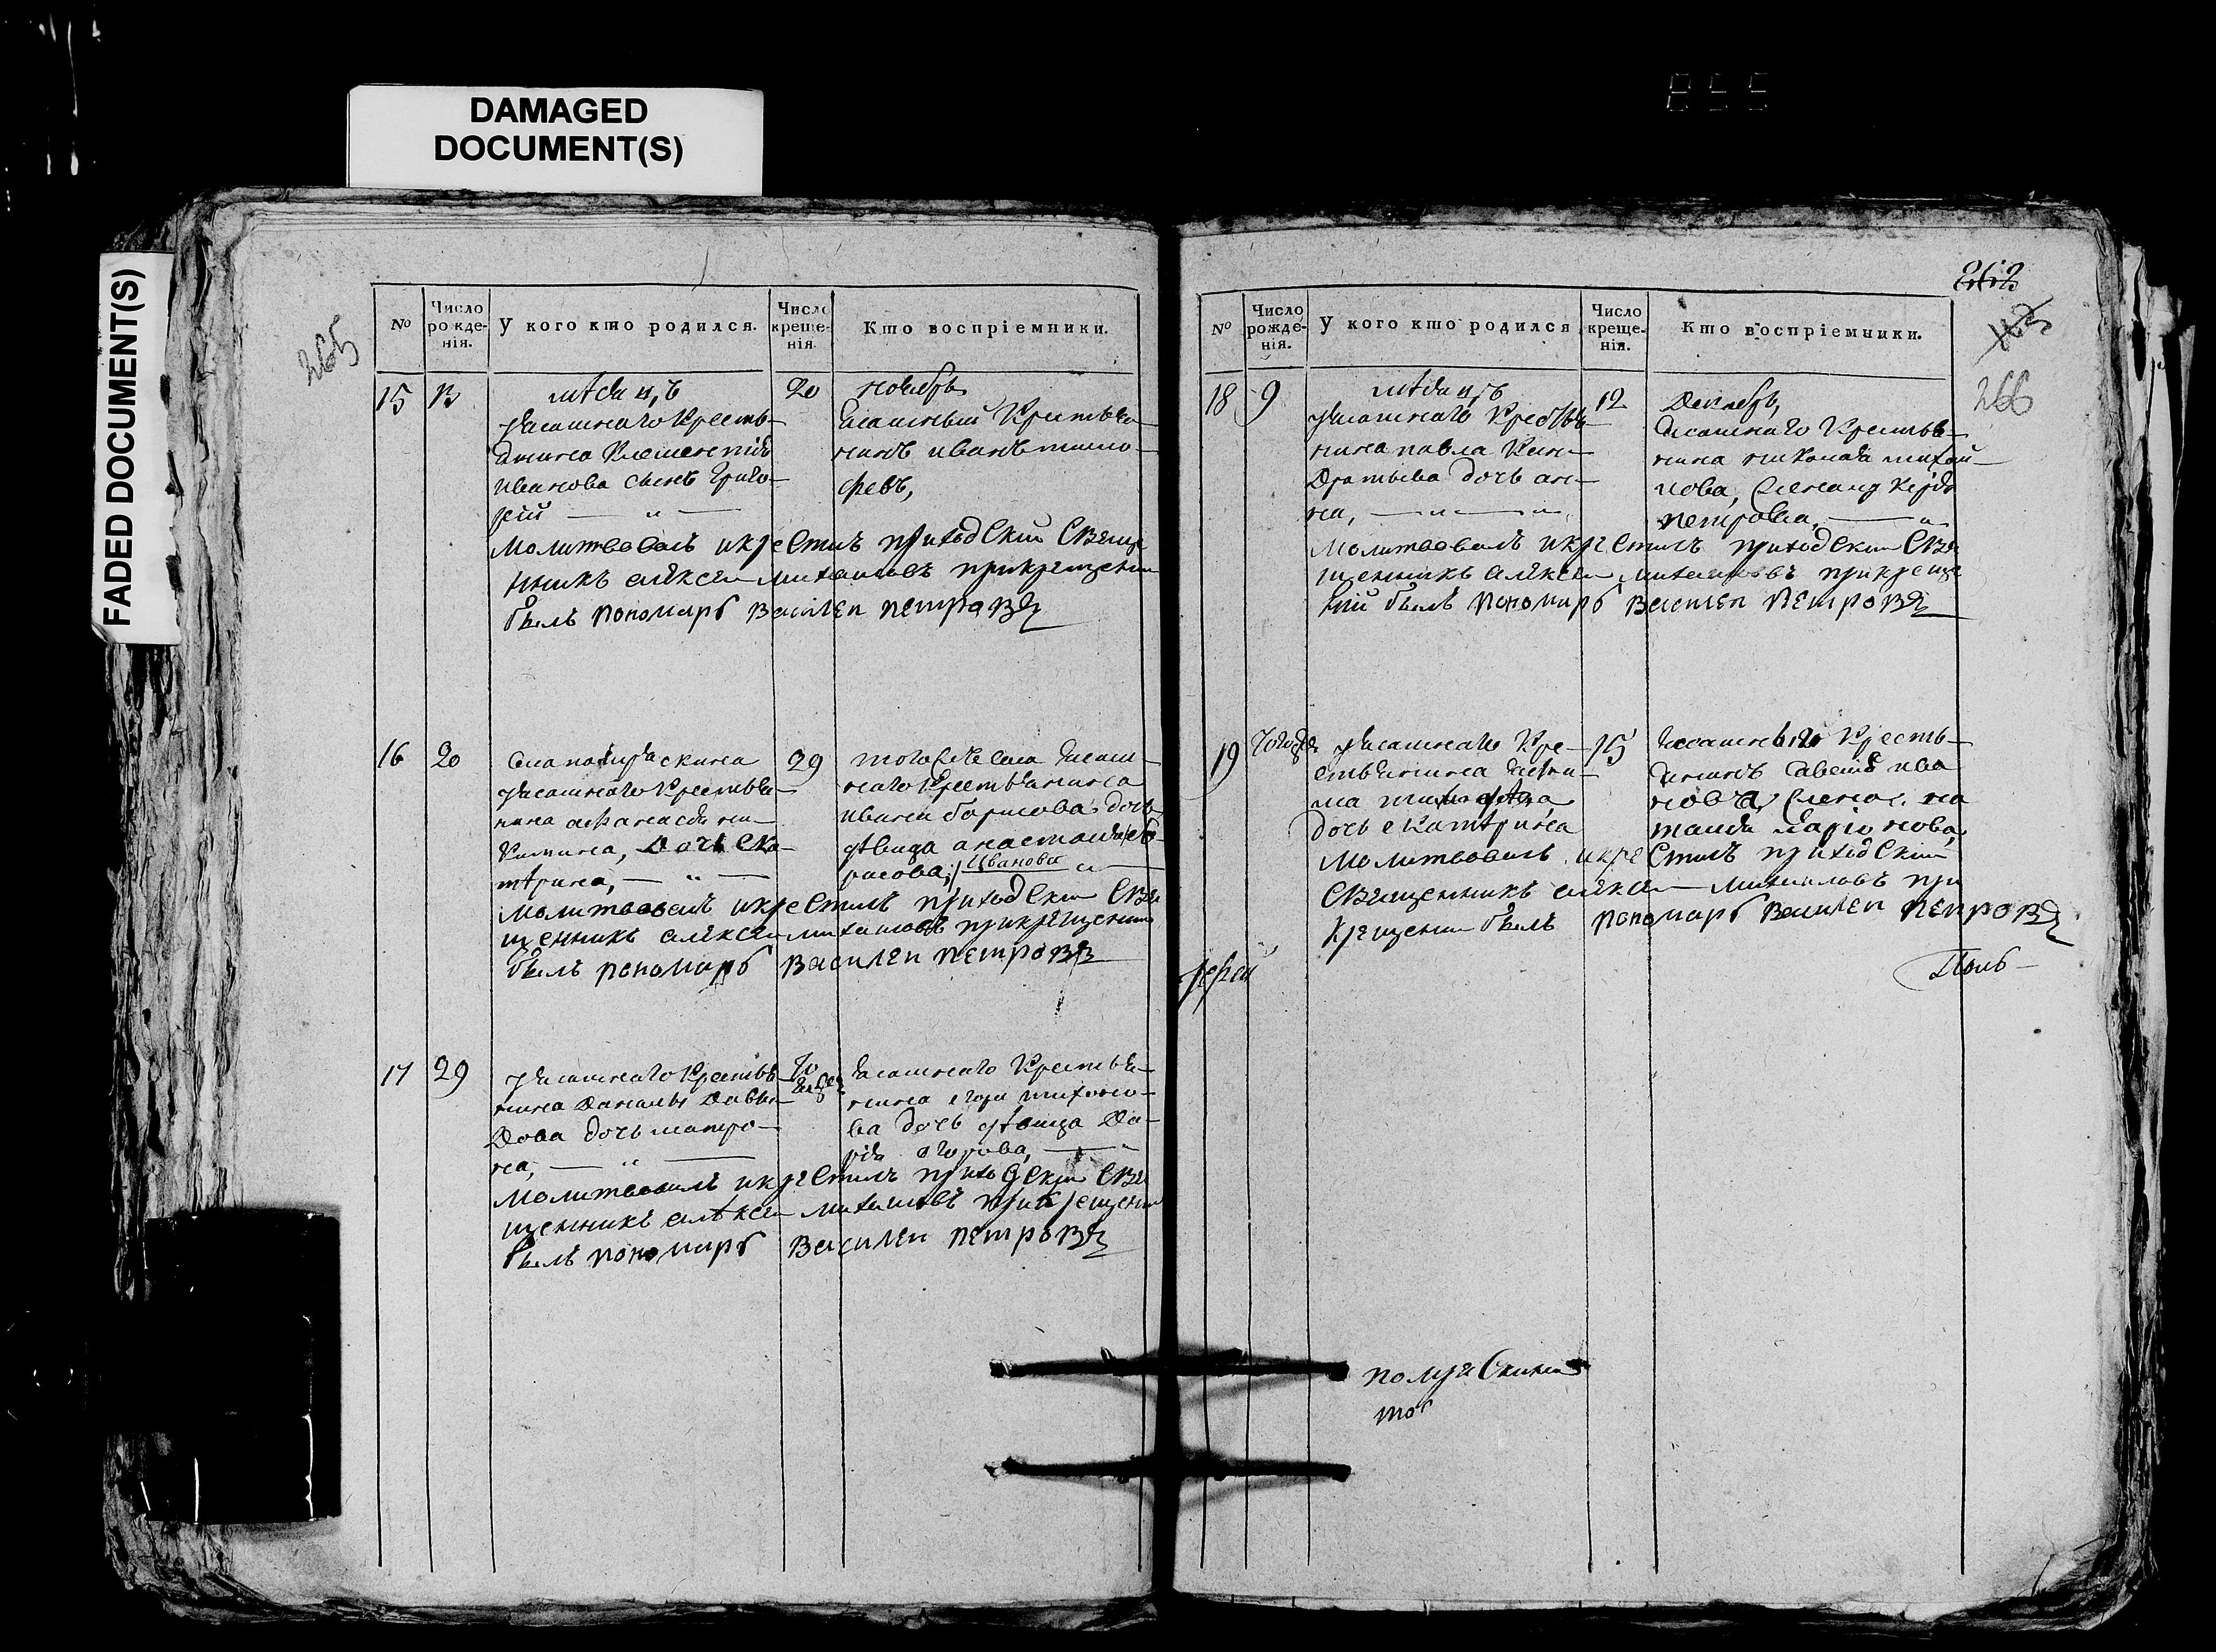 DAMAGED
DOCUMENT(S)
FADED DOCUMENT(S)
855
265
№ Число рожденія. У кого кто родился. Число крещенія. Кто воспріемники.
15 20 ноябрь
мѣсяцъ
Ясашнаго Кресть-
янина
Иванова сынъ Григо-
рій
Ясашный Крестья-
нинъ иванъ тимо-
фѣевъ,
Молитвовалъ и крестилъ приходскій Свяще
нникъ алексей михаиловъ прикрещении
былъ пономарь Василеи петровъ
16 20 29
Села
Ясашнаго Крестья-
нина афанасья ни-
китина, Дочь Ека-
тѣрина,
тогожъ села Ясаш-
наго Крестьянина
ивана борисова дочь
дѣвица анастасия бо-
рисова, Иванова
Молитвовалъ и крестилъ приходскій Свя
щенникъ алексеи михаиловъ прикрещении
былъ пономарь Василеи петровъ
17 29
Ясашнаго Крестья-
нина Данилы Давы-
Дова дочь матро-
на,
Ясашнаго Крестья-
нина егора тихоно-
ва дочь дѣвица Да-
рья егорова,
Молитвовалъ и крестилъ приходскій Свя
щенникъ алексеи михаиловъ прикрещении
былъ пономарь Василеи петровъ
262
266
№ Число рожденія. У кого кто родился Число крещенія. Кто воспріемники.
18 9 12 Декабрь,
мѣсяцъ
Ясашнаго Крестья-
нина павла Кон-
Дратьева дочь ан-
на,
Ясашнаго Крестья-
нина николая михаи-
лова,
петровна,
Молитвовалъ и крестилъ приходскій Свя
щенникъ алексеи михаиловъ прикреще
ніи былъ пономарь Василеи петровъ
19 15
Ясашнаго Кре-
стьянина
дочь екатѣрина
Кресть-
янинъ Савелей ива
новъ, на
талья Ларіонова
Молитвовалъ и крестилъ приходскій
Священникъ алексеи михаиловъ при
крещении былъ пономарь Василеи петровъ
Іерей